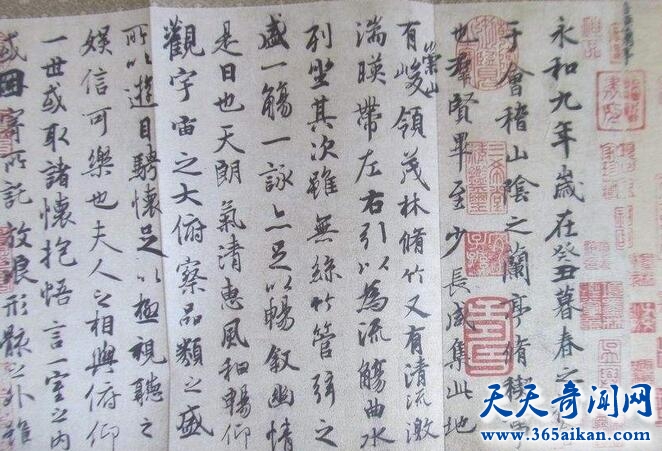 永和九年歲在癸丑暮春之初
于會稽山陰之蘭亭脩稧事
也羣賢畢至少長咸集此地
有崇山峻領茂林脩竹又有清流激
湍暎帶左右引以為流觴曲水
列坐其次雖無絲竹管弦之
盛一觴一詠亦足以暢敘幽情
是日也天朗氣清惠風和暢仰
觀宇宙之大俯察品類之盛
所以遊目騁懷足以極視聽之
娛信可樂也夫人之相與俯仰
一世或取諸懷抱悟言一室之內
或因寄所託放浪形骸之外雖
天天奇闻网
www.365aikan.com